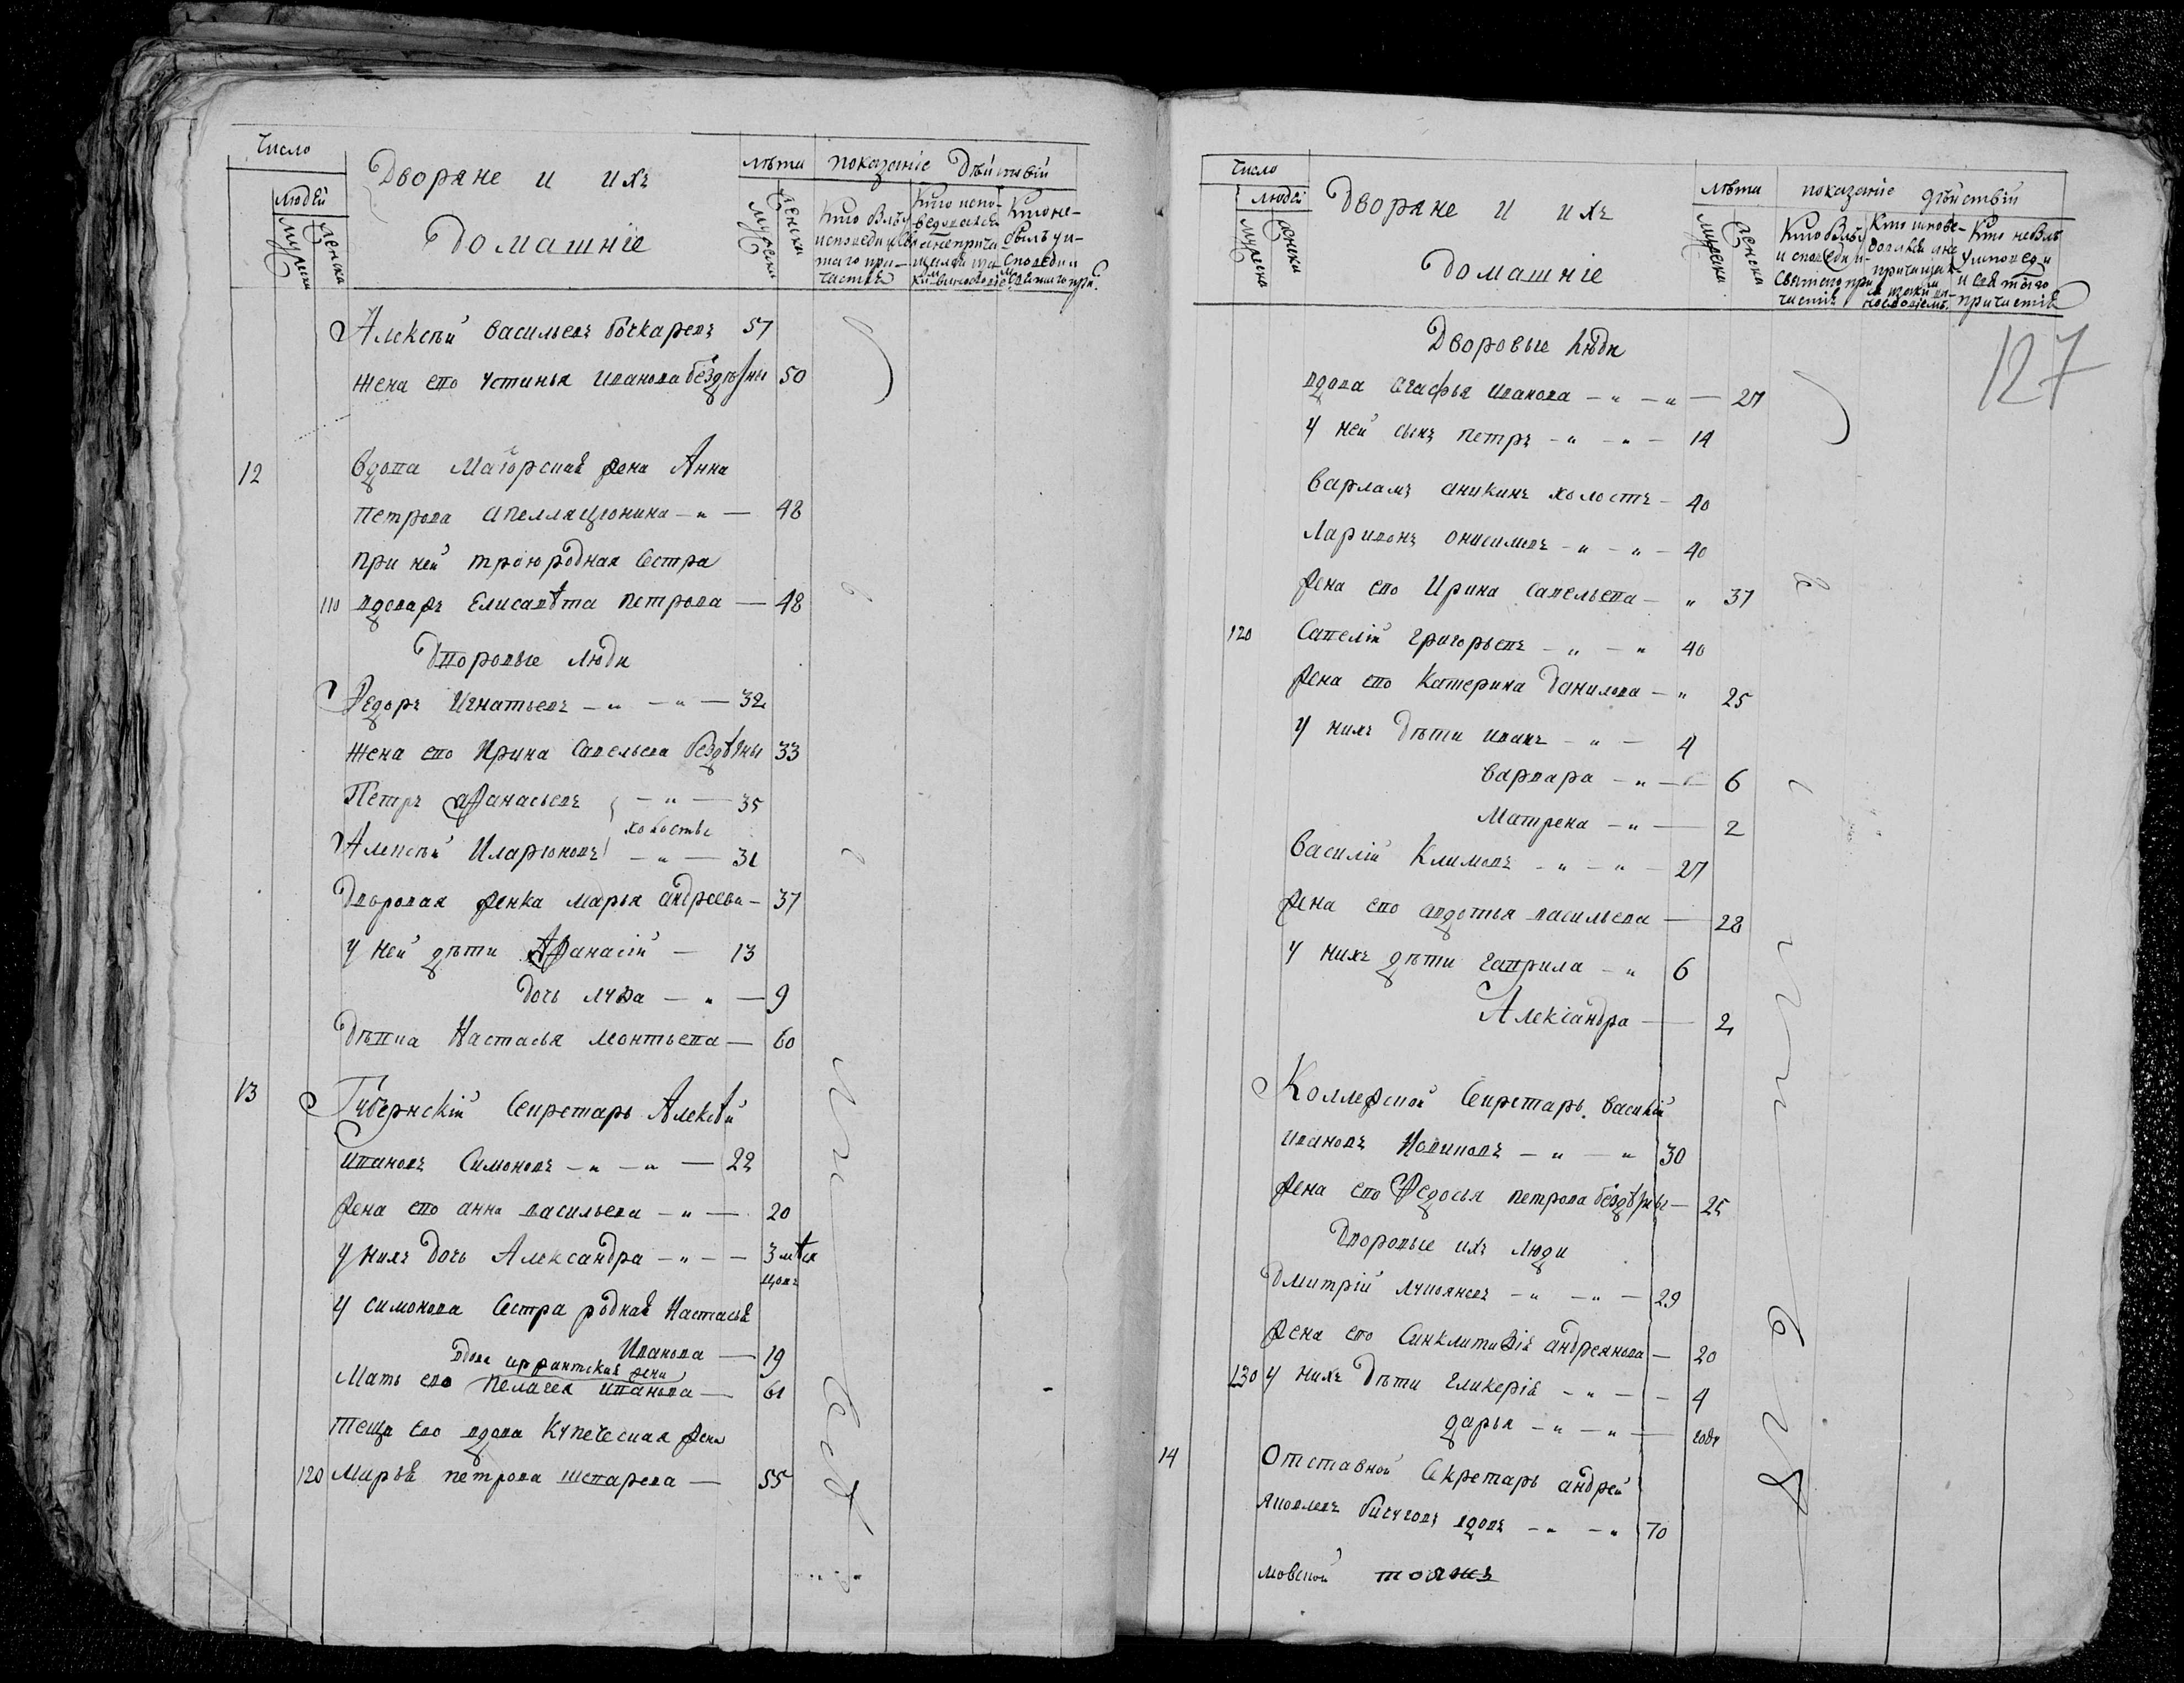 Число
людей
мужеска
женска
Дворяне и ихъ
домашніе
лѣта
мужеска
женска
показаніе дѣйствій
Кто былъ у
исповеди и свя
таго при-
частія
Кто испо-
ведовался
а не прича
щался
Кто не-
былъ у и-
споведи и
святаго при:
Алексѣй Васильевъ Бочкаревъ 57
жена его Устинья Иванова бездѣтны 50
12 вдова Маіорская жена Анна
Петрова Апелляціонина — " — 48
при ней троюродная сестра
110 вдоваже Елисавѣта Петрова — 48
Дворовые люди
Федоръ Игнатьевъ — " — " — 32
жена его Ирина Савельева бездѣтны 33
Петръ Афанасьевъ — " — 35
холосты
Алексѣй Иларіоновъ — " — 31
Дворовая женка Марья Андреева — 37
у ней дѣти Афанасій — 13
дочь Луша — " — 9
Дѣвка Настасья Леонтьева — 60
13 Губернскій Секретарь Алексѣй
Ивановъ Симоновъ — " — " — 22
жена его Анна Васильева — " — 20
у нихъ дочь Александра — " — — 3 мѣся
цовъ
у Симонова сестра родная Настасья
Иванова — 19
вдова жена
Мать его Пелагея Иванова — 61
теща его вдова купеческая жена
120 Марья Петрова — 55
Число
людей
мужеска
женска
Дворяне и ихъ
домашніе
лѣта
мужеска
женска
показаніе дѣйствій
Кто былъ у
исповеди и
святаго при
частія
Кто испове-
довался а не
причащал
ся
Кто не былъ
у исповеди
и святаго
причастія
127
Дворовые люди
вдова Агафья Иванова — " — " — 27
у ней сынъ Петръ — " — " — 14
Варламъ Аникинъ холостъ — 40
Ларивонъ Онисимовъ — " — " — 40
жена его Ирина Савельева — " 37
120 Савелій Григорьевъ — " — " 40
жена его Катерина Данилова — " 25
у нихъ дѣти Иванъ — " — 4
Варвара — " — 6
Матрена — " — 2
Василій Климовъ — " — " — 27
жена его Авдотья Васильева — 28
у нихъ дѣти Гаврила — " 6
Александра — 2
Коллежской Секретарь Василій
Ивановъ Новиковъ — " — " 30
жена его Федосья Петрова бездѣтны — 25
Дворовые ихъ люди
Дмитрій Лукояновъ — " — " — 29
жена его Синклитикія Андреянова — 20
130 у нихъ дѣти Гликерія — " — — 4
Дарья — " — " — годъ
14 Отставной Секретарь Андрей
Яковлевъ вдовъ — " — " 70